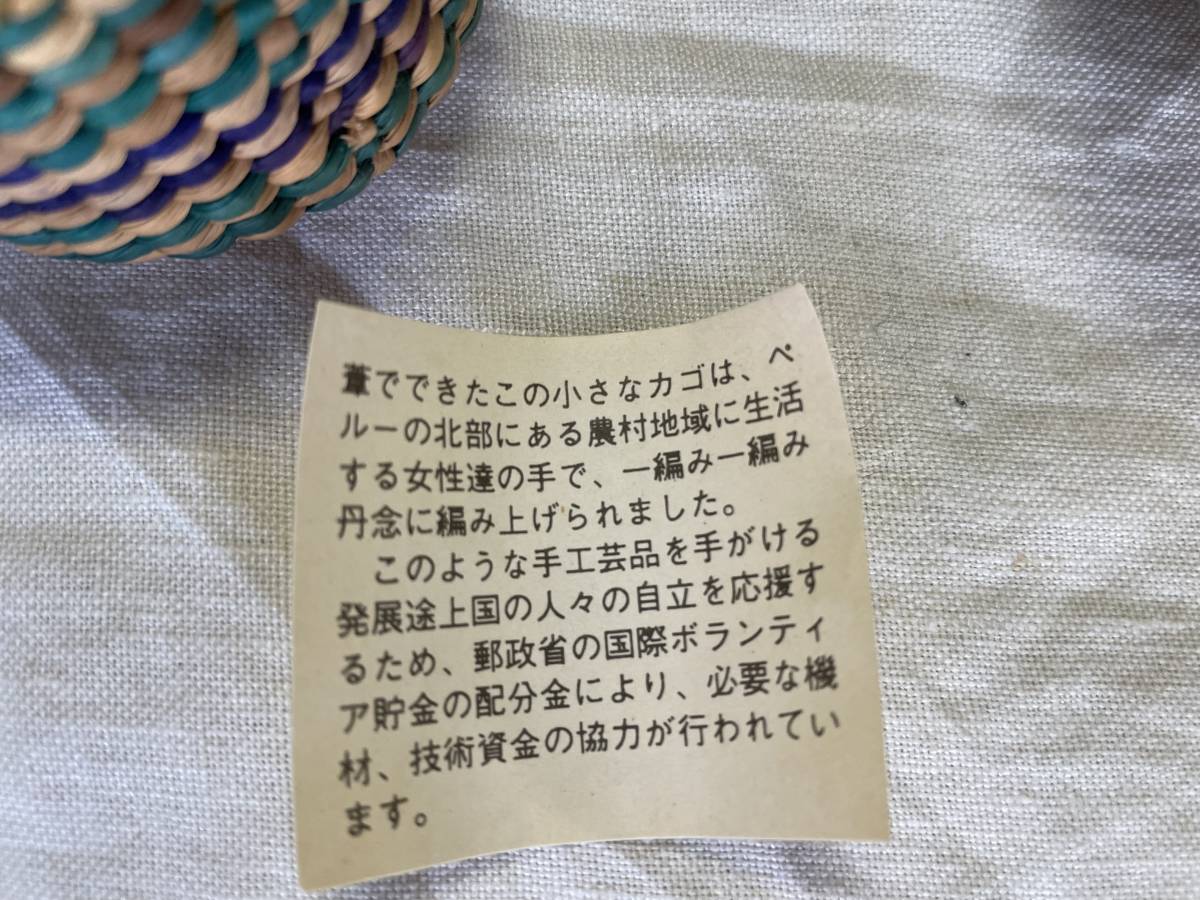 葦でできたこの小さなカゴは、ペ
ルーの北部にある農村地域に生活
する女性達の手で、一編み一編み
丹念に編み上げられました。
　このような手工芸品を手がける
発展途上国の人々の自立を応援す
るため、郵政省の国際ボランティ
ア貯金の配分金により、必要な機
材、技術資金の協力が行われてい
ます。